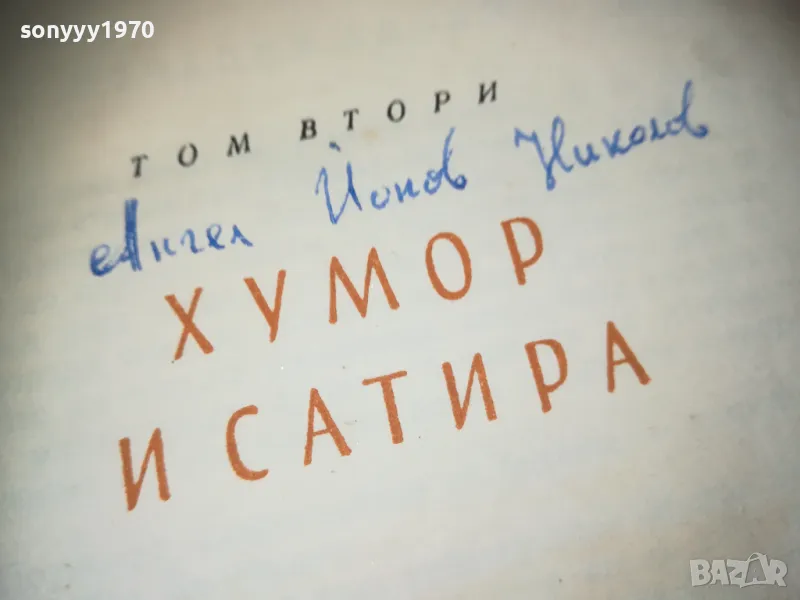 sonyyy1970
ТОМ ВТОРИ
Ангел Йонов Николов
ХУМОР
И САТИРА
BAZAR